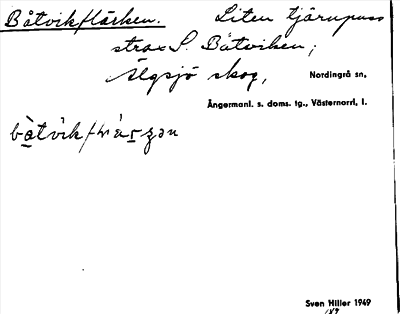 Båtviktjärken. Liten tjärnpuss
strax S. Båtviken;
Älgsjö skog, Nordingrå sn,
Ångermanl. s. doms. tg., Västernorrl. l.
Sven Hiller 1949